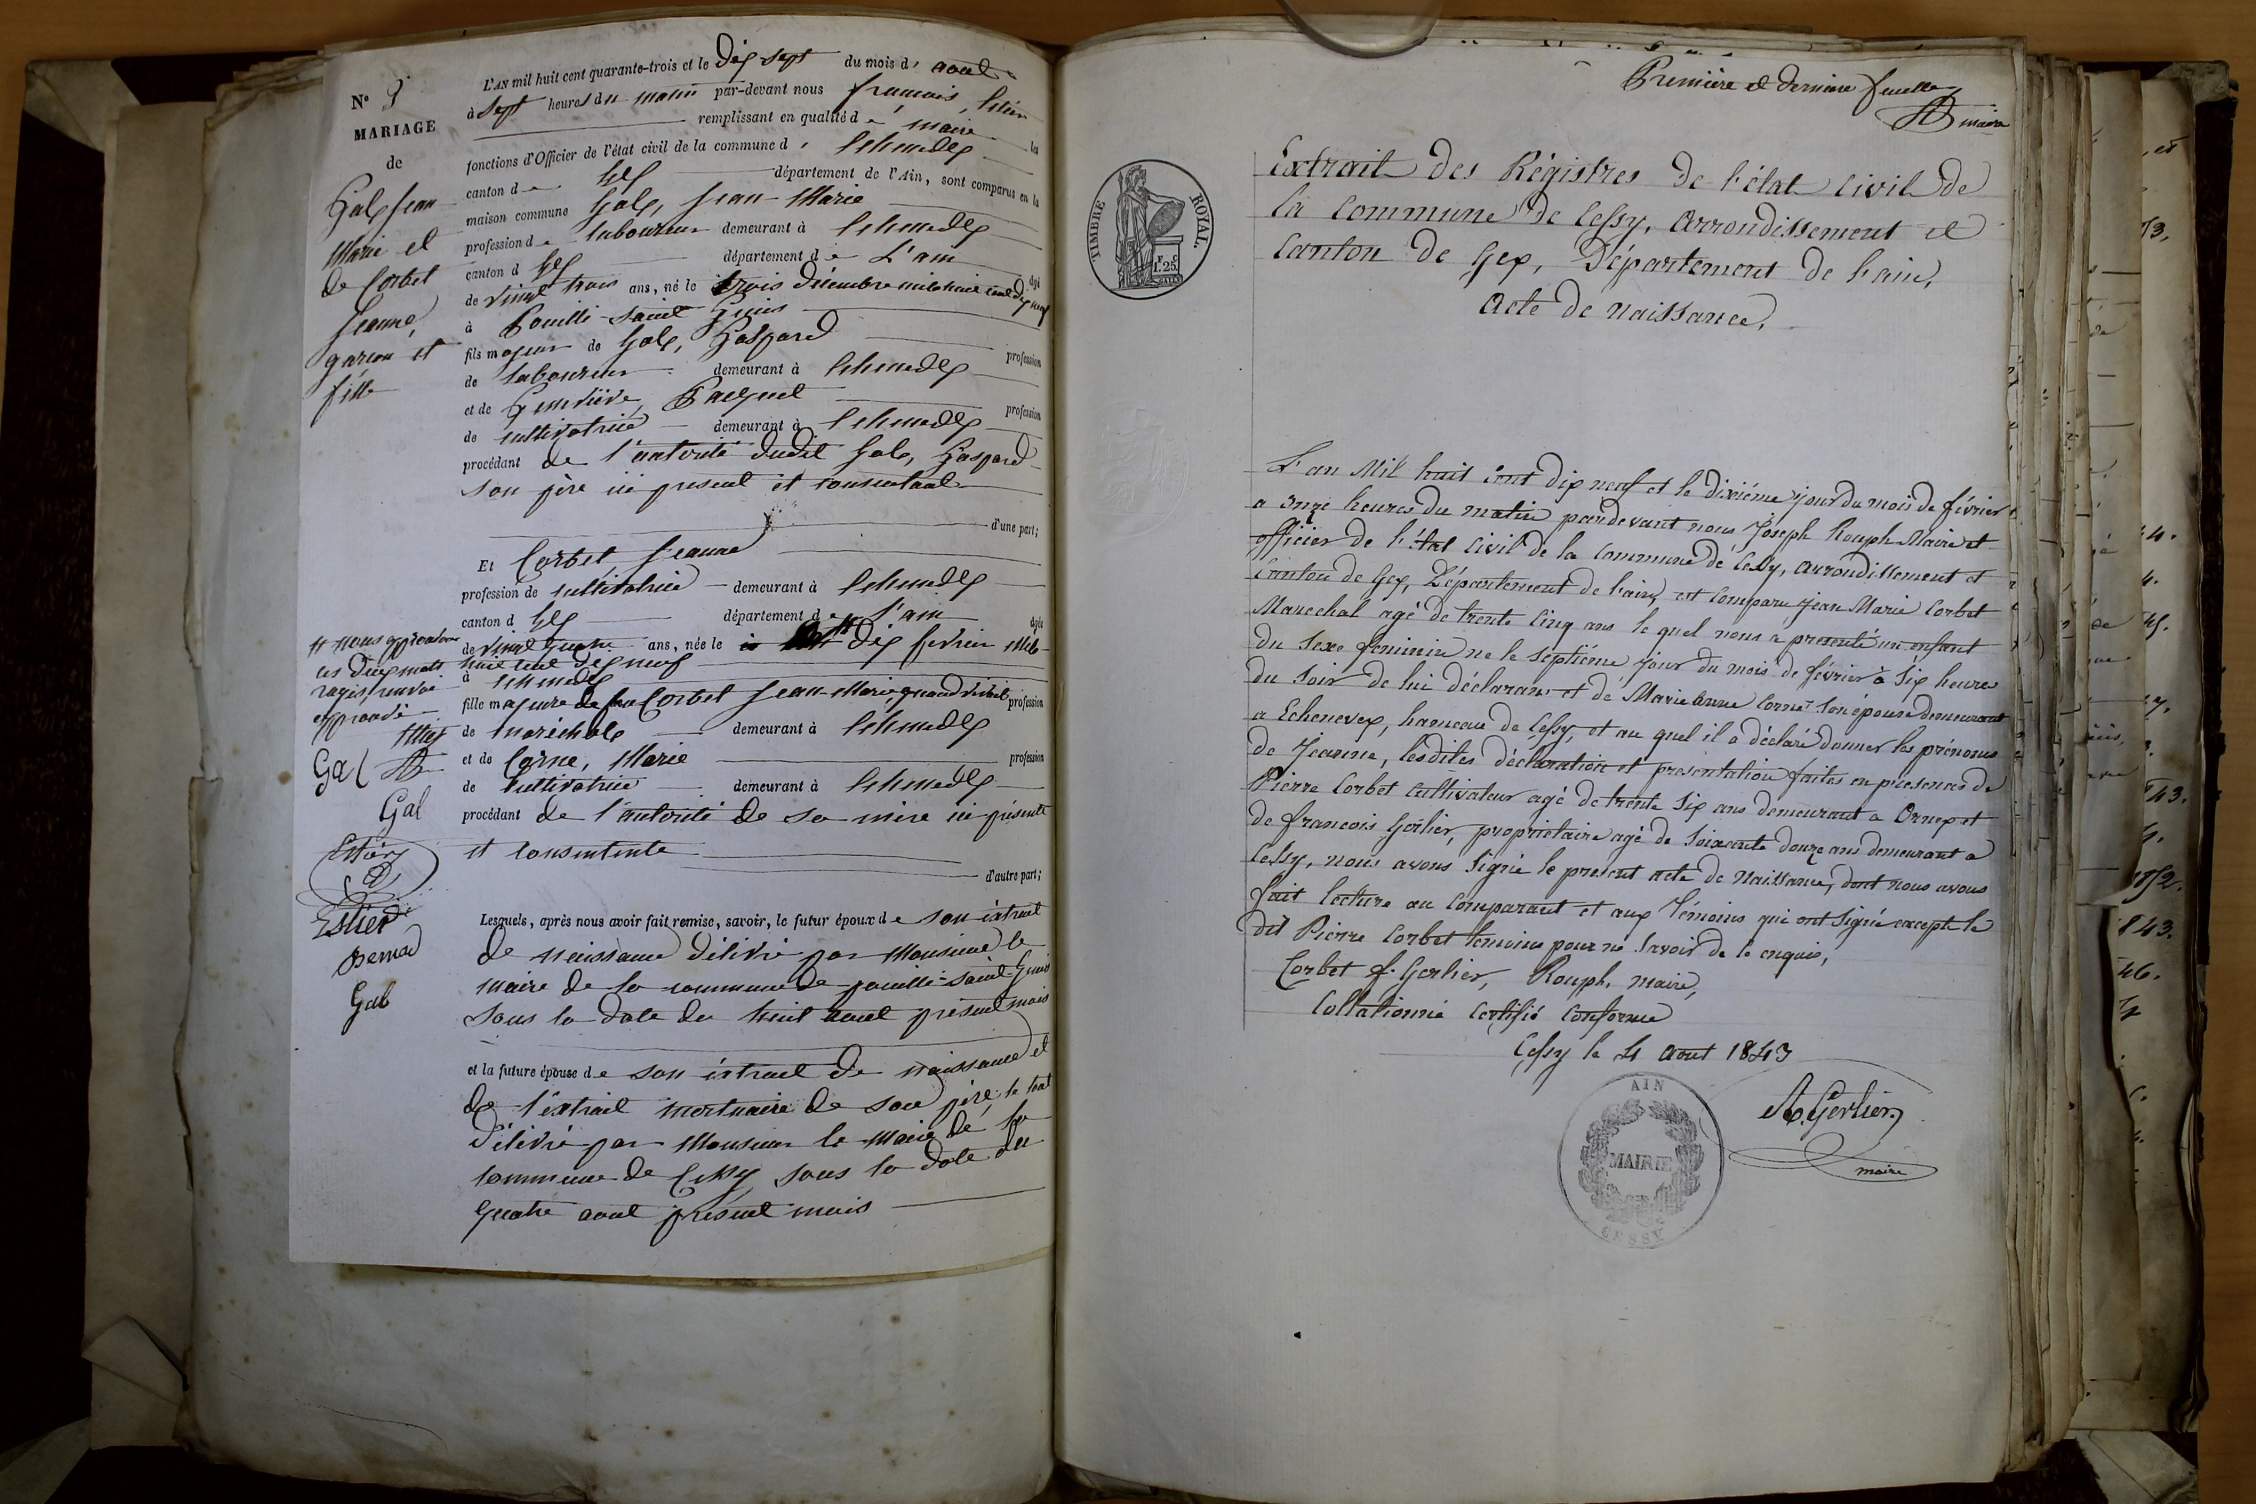 N° 9
MARIAGE
de
Gal Jean
Marie et
de Corbet
Jeanne,
garcon et
fille
L'AN mil huit cent quarante-trois et le dix sept du mois d'aout
à sept heures du matin par-devant nous francois,
remplissant en qualité de maire les
fonctions d'Officier de l'état civil de la commune d'Echenevex
canton de Gex département de l'Ain, sont comparus en la
maison commune Gal, Jean-Marie
profession de laboureur demeurant à Echenevex
canton d Gex département de L'ain âgé
de vingt trois ans, né le trois décembre mil huit cent dix neuf
à Pouilli-Saint Genis
fils majeur de Gal, Gaspard profession
de laboureur demeurant à Echenevex
et de Genviève, profession
de cultivatrice demeurant à Echenevex
procédant de l'autorité dudit Gal, Gaspard
son père ici présent et consentant
d'une part;
Et Corbet Jeanne
profession de cultivatrice demeurant à Echenevex
canton d Gex département de l'ain âgée
de vingt quatre ans, née le dix fevrier mil
huit cent dix neuf
à Echenevex
fille majeure de feu Corbet Jean-Marie quand vivait profession
de maréchal demeurant à Echenevex
et de Corne, Marie profession
de cultivatrice demeurant à Echenevex
procédant de l'autorité de sa mère ici présente
et consentente
d'autre part;
nous approuvons
les deux mots
rayés, renvoi
approuvé
Gal
Gal
Estier
Bernad
Gal
Lesquels, après nous avoir fait remise, savoir, le futur époux de son extrait
de naissance délivré par Monsieur le
maire de la commune de pouilli-saint-Genis
sous la date du huit aout présent mois
et la future épouse de son extrait de naissance et
de l'extrait mortuaire de son père, le tout
délivré par Monsieur le Maire de la
commune de Cessy sous la date du
quatre aout présent mois
Première et derniere feuille
maire
TIMBRE ROYAL.
1.25
Extrait des Régistres de l'état civil de
la commune de Cessy, arrondissement et
Canton de Gex, Département de l'ain,
Acte de Naissance,
L'an Mil huit cent dix neuf et le dixiéme jour du mois de février
a onze heures du matin pardevant nous Joseph Rouph Maire et
officier de l'état civil de la commune de Cessy, arrondissement et
Canton de Gex, Département de l'ain, est comparu Jean Marie Corbet
Marechal agé de trente cinq ans le quel nous a presenté un enfant
du sexe feminin ne le septiéme jour du mois de février à six heures
du soir de lui déclarant et de Marie Anne Corne son épouse demeurant
a Echenevex, hameau de Cessy, et au quel il a déclaré donner les prénoms
de Jeanne, les dites déclaration et presentation faites en presence de
Pierre Corbet Cultivateur agé de trente six ans demeurant a Ornex et
de francois Gerlier, propriétaire agé de soixante douze ans demeurant a
Cessy, nous avons signé le present acte de Naissance, dont nous avons
fait lecture au comparant et aux témoins qui ont signé excepté le
dit Pierre Corbet temoins pour ne savoir de le enquis,
Corbet f. Gerlier, Rouph, maire,
Collationné Certifié Conforme
Cessy le 4 aout 1843
A. Gerlier
maire
AIN
MAIRIE
CESSY